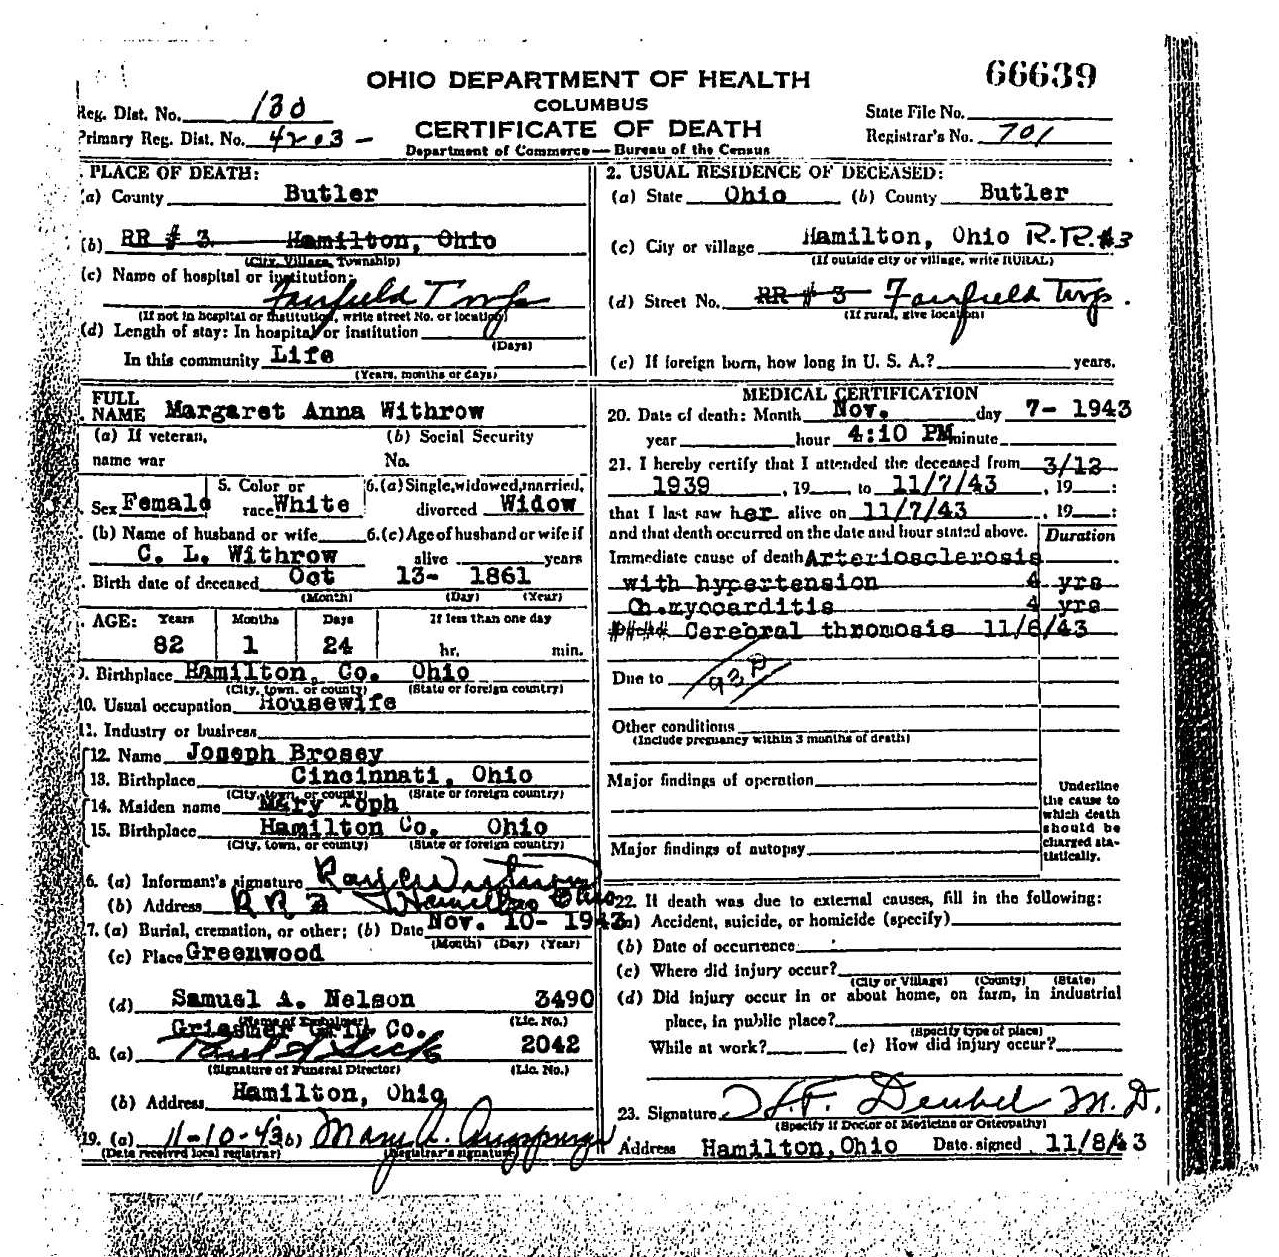 66639
OHIO DEPARTMENT OF HEALTH
COLUMBUS
CERTIFICATE OF DEATH
Department of Commerce — Bureau of the Census
Reg. Dist. No. 130
Primary Reg. Dist. No. 4203 -
State File No.
Registrar's No. 701
. PLACE OF DEATH:
(a) County Butler
(b) RR # 3 Hamilton, Ohio
(City, Village, Township)
(c) Name of hospital or institution:
Fairfield Twp
(If not in hospital or institution, write street No. or location)
(d) Length of stay: In hospital or institution
(Days)
In this community Life
(Years, months or days)
2. USUAL RESIDENCE OF DECEASED:
(a) State Ohio (b) County Butler
(c) City or village Hamilton, Ohio R.R.#3
(If outside city or village, write RURAL)
(d) Street No. RR # 3 Fairfield Twp.
(If rural, give location)
(e) If foreign born, how long in U. S. A.? years.
FULL
NAME Margaret Anna Withrow
(a) If veteran, (b) Social Security
name war No.
. Sex Female 5. Color or race White 6.(a) Single, widowed, married, divorced Widow
. (b) Name of husband or wife 6.(c) Age of husband or wife if
C. L. Withrow alive years
. Birth date of deceased Oct 13- 1861
(Month) (Day) (Year)
. AGE: Years Months Days If less than one day
82 1 24 hr. min.
9. Birthplace Hamilton, Co. Ohio
(City, town, or county) (State or foreign country)
10. Usual occupation Housewife
11. Industry or business
12. Name Joseph Brosey
13. Birthplace Cincinnati, Ohio
(City, town, or county) (State or foreign country)
14. Maiden name Mary Toph
15. Birthplace Hamilton Co. Ohio
(City, town, or county) (State or foreign country)
6. (a) Informant's signature
(b) Address R R 3 Hamilton Ohio
7. (a) Burial, cremation, or other; (b) Date Nov. 10- 1943
(Month) (Day) (Year)
(c) Place Greenwood
(d) Samuel A. Nelson 3490
(Name of Embalmer) (Lic. No.)
Co.
8. (a) 2042
(Signature of Funeral Director) (Lic. No.)
(b) Address Hamilton, Ohio
19. (a) 11-10-43 (b) Mary A.
(Date received local registrar) (Registrar's signature)
MEDICAL CERTIFICATION
20. Date of death: Month Nov. day 7- 1943
year hour 4:10 PM minute
21. I hereby certify that I attended the deceased from 3/12
1939 , 19 , to 11/7/43 , 19 :
that I last saw her alive on 11/7/43 , 19 :
and that death occurred on the date and hour stated above. Duration
Immediate cause of death Arteriosclerosis
with hypertension 4 yrs
Ch.myocarditis 4 yrs
#### Cerebral thromosis 11/6/43
Due to
Other conditions
(Include pregnancy within 3 months of death)
Major findings of operation
Major findings of autopsy
Underline
the cause to
which death
should be
charged sta-
tistically.
22. If death was due to external causes, fill in the following:
(a) Accident, suicide, or homicide (specify)
(b) Date of occurrence
(c) Where did injury occur?
(City or Village) (County) (State)
(d) Did injury occur in or about home, on farm, in industrial
place, in public place?
(Specify type of place)
While at work? (e) How did injury occur?
23. Signature H.F. Deubel M.D.
(Specify if Doctor of Medicine or Osteopathy)
Address Hamilton, Ohio Date signed 11/8/43